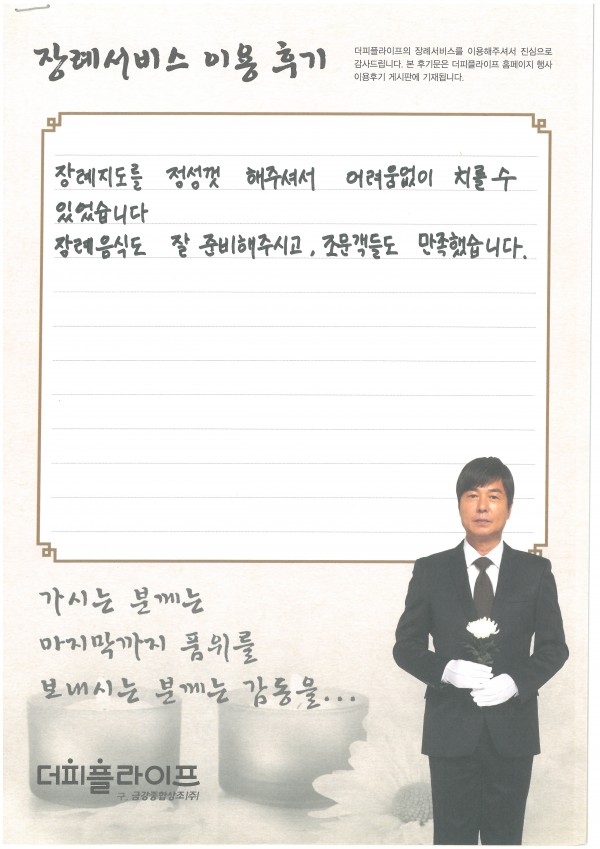 장례서비스 이용 후기
더피플라이프의 장례서비스를 이용해주셔서 진심으로
감사드립니다. 본 후기문은 더피플라이프 홈페이지 행사
이용후기 게시판에 기재됩니다.
장례지도를 정성껏 해주셔서 어려움없이 치룰 수
있었습니다
장례음식도 잘 준비해주시고, 조문객들도 만족했습니다.
가시는 분께는
마지막까지 품위를
보내시는 분께는 감동을...
더피플라이프
구, 금강종합상조(주)